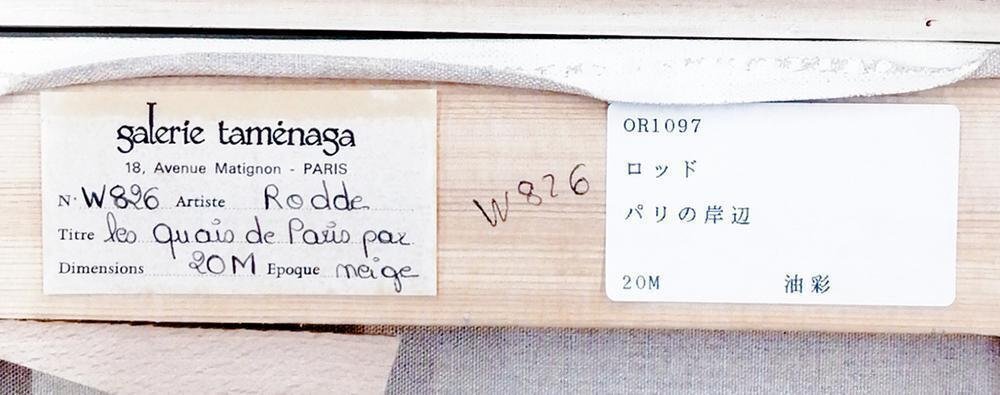 galerie taménaga
18, Avenue Matignon - PARIS
N° W826 Artiste Rodde
Titre les quais de Paris par
Dimensions 20M Epoque neige
W826
OR1097
ロッド
パリの岸辺
20M 油彩